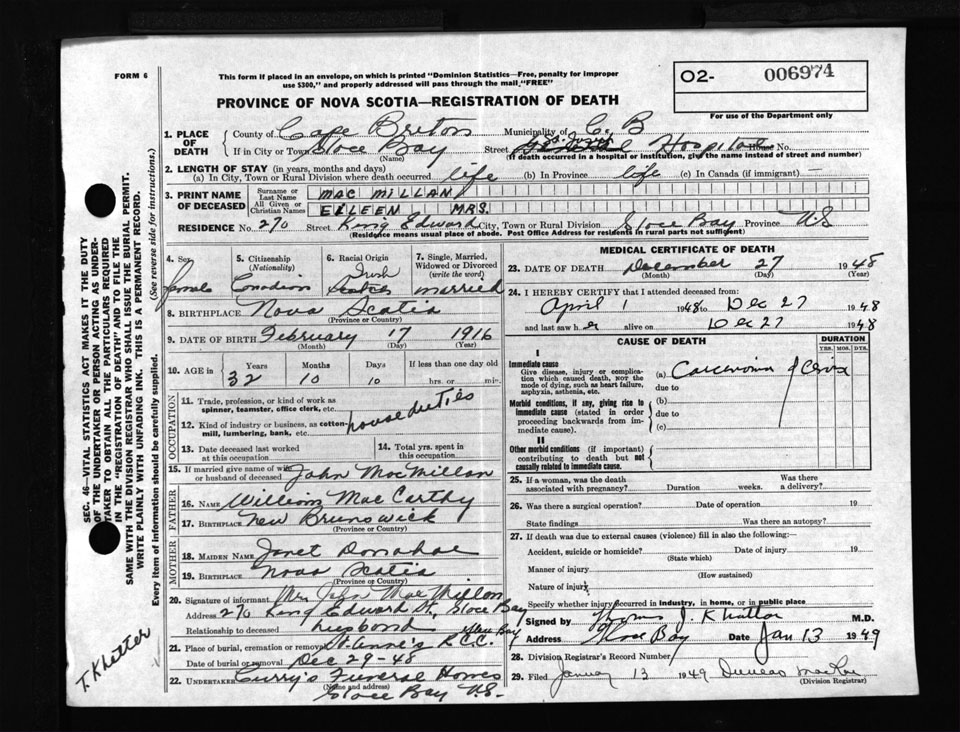 FORM 6
This form if placed in an envelope, on which is printed "Dominion Statistics—Free, penalty for improper
use $300," and properly addressed will pass through the mail, "FREE"
O2- 006974
For use of the Department only
PROVINCE OF NOVA SCOTIA—REGISTRATION OF DEATH
1. PLACE OF DEATH { County of Cape Breton Municipality of C. B
If in City or Town Glace Bay (Name) Street Hospital House No.
(If death occurred in a hospital or institution, give the name instead of street and number)
2. LENGTH OF STAY (in years, months and days)
(a) In City, Town or Rural Division where death occurred life (b) In Province life (c) In Canada (if immigrant) —
3. PRINT NAME OF DECEASED { Surname or Last Name MAC MILLAN
All Given or Christian Names EILEEN MRS.
RESIDENCE No. 270 Street King Edward City, Town or Rural Division Glace Bay Province N.S
(Residence means usual place of abode. Post Office Address for residents in rural parts not sufficient)
4. Sex female
5. Citizenship (Nationality) Canadian
6. Racial Origin Irish
7. Single, Married, Widowed or Divorced (write the word) married
8. BIRTHPLACE Nova Scotia
(Province or Country)
9. DATE OF BIRTH February 17 1916
(Month) (Day) (Year)
10. AGE in { Years 32 Months 10 Days 10 If less than one day old hrs. or min.
OCCUPATION
11. Trade, profession, or kind of work as spinner, teamster, office clerk, etc.
house duties
12. Kind of industry or business, as cotton-mill, lumbering, bank, etc.
13. Date deceased last worked at this occupation
14. Total yrs. spent in this occupation
15. If married give name of wife or husband of deceased John MacMillan
FATHER
16. NAME William MacCarthy
17. BIRTHPLACE New Brunswick
(Province or Country)
MOTHER
18. MAIDEN NAME Janet Donahoe
19. BIRTHPLACE Nova Scotia
(Province or Country)
20. Signature of informant Mr. John MacMillan
Address 270 King Edward St., Glace Bay
Relationship to deceased husband
21. Place of burial, cremation or removal St. Anne's R.C.C. Glace Bay
Date of burial or removal Dec 29-48
22. UNDERTAKER Curry's Funeral Homes
(Name and address) Glace Bay N.S.
MEDICAL CERTIFICATE OF DEATH
23. DATE OF DEATH December 27 1948
(Month) (Day) (Year)
24. I HEREBY CERTIFY that I attended deceased from:
April 1 1948 to Dec 27 1948
and last saw her alive on Dec 27 1948
CAUSE OF DEATH
DURATION
YRS. MOS. DYS.
I
Immediate cause
Give disease, injury or complication which caused death, NOT the mode of dying, such as heart failure, asphyxia, asthenia, etc.
(a) Carcinoma of Cervix
due to
Morbid conditions, if any, giving rise to immediate cause (stated in order proceeding backwards from immediate cause).
(b)
due to
(c)
II
Other morbid conditions (if important) contributing to death but not causally related to immediate cause.
25. If a woman, was the death associated with pregnancy? Duration weeks. Was there a delivery?
26. Was there a surgical operation? Date of operation 19
State findings Was there an autopsy?
27. If death was due to external causes (violence) fill in also the following:—
Accident, suicide or homicide? Date of injury 19
(State which)
Manner of injury
(How sustained)
Nature of injury
Specify whether injury occurred in industry, in home, or in public place
Signed by Thomas J. Khattar M.D.
Address Glace Bay Date Jan 13 1949
28. Division Registrar's Record Number
29. Filed January 13 1949 Duncan MacRae
(Division Registrar)
SEC. 46—VITAL STATISTICS ACT MAKES IT THE DUTY
OF THE UNDERTAKER OR PERSON ACTING AS UNDER-
TAKER TO OBTAIN ALL THE PARTICULARS REQUIRED
IN THE "REGISTRATION OF DEATH" AND TO FILE THE
SAME WITH THE DIVISION REGISTRAR WHO SHALL ISSUE THE BURIAL PERMIT.
WRITE PLAINLY WITH UNFADING INK. THIS IS A PERMANENT RECORD.
Every item of information should be carefully supplied. (See reverse side for instructions.)
T. Khatter